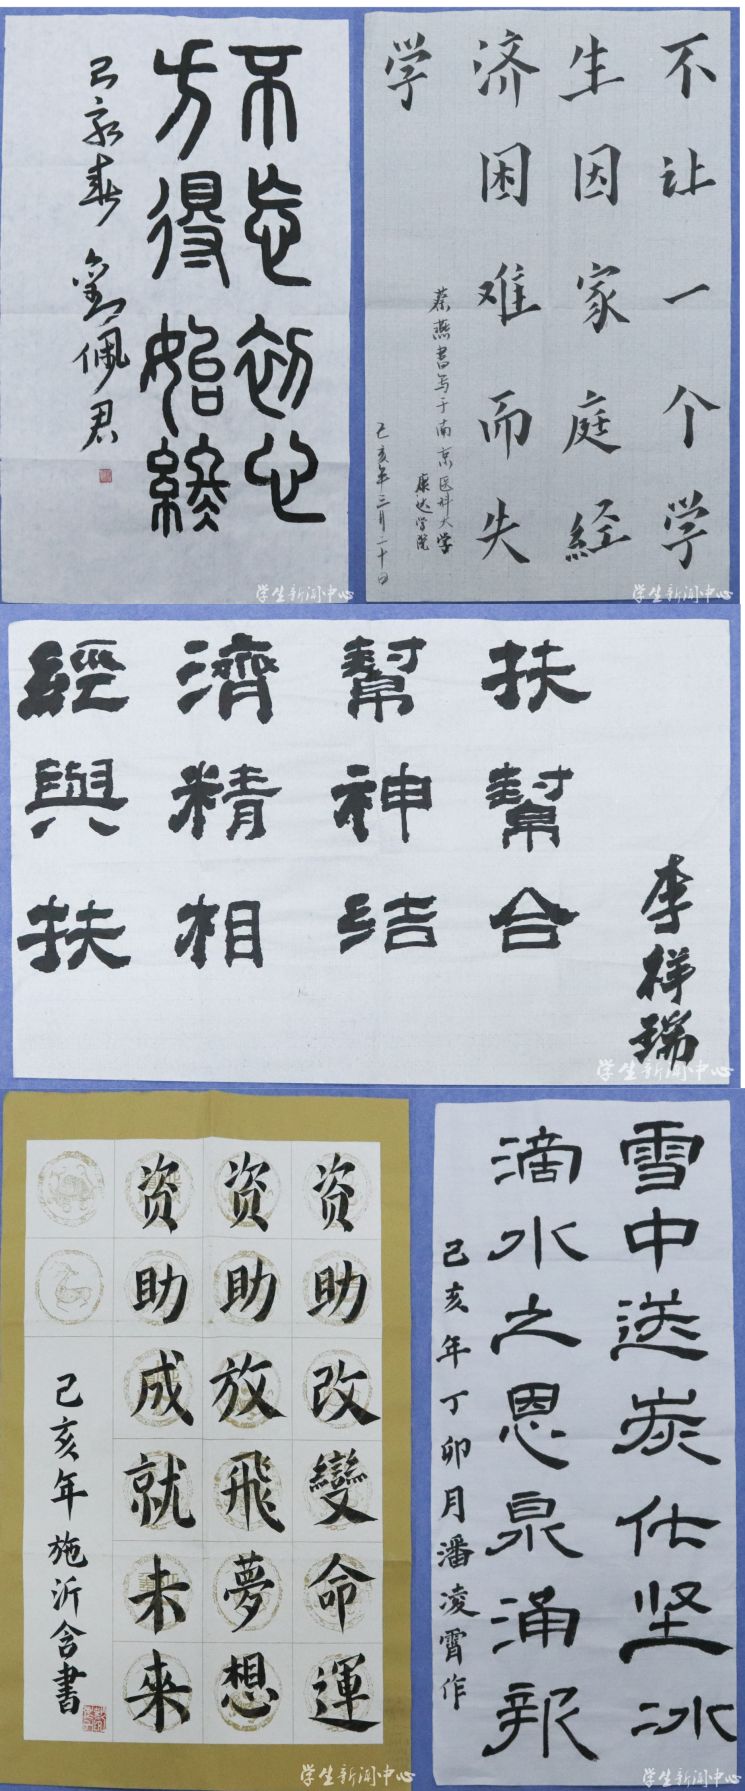 不忘初心
方得始終
己亥春 劉佩君
学生新闻中心
不让一个学
生因家庭经
济困难而失
学
蔡燕书写于南京医科大学
康达学院
己亥年三月二十日
学生新闻中心
經濟幫扶
與精神幫
扶相结合
李祥瑞
学生新闻中心
资助改變命運
资助放飛夢想
资助成就未來
己亥年施沂含書
学生新闻中心
雪中送炭仕坚冰
滴水之恩泉涌報
己亥年丁卯月潘凌霄作
学生新闻中心